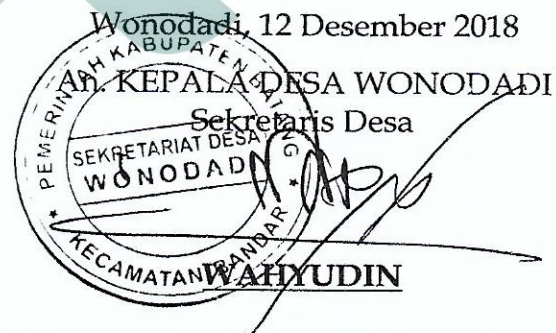 Wonodadi, 12 Desember 2018
An. KEPALA DESA WONODADI
Sekretaris Desa
PEMERINTAH KABUPATEN BATANG
SEKRETARIAT DESA
WONODADI
* KECAMATAN BANDAR *
WAHYUDIN